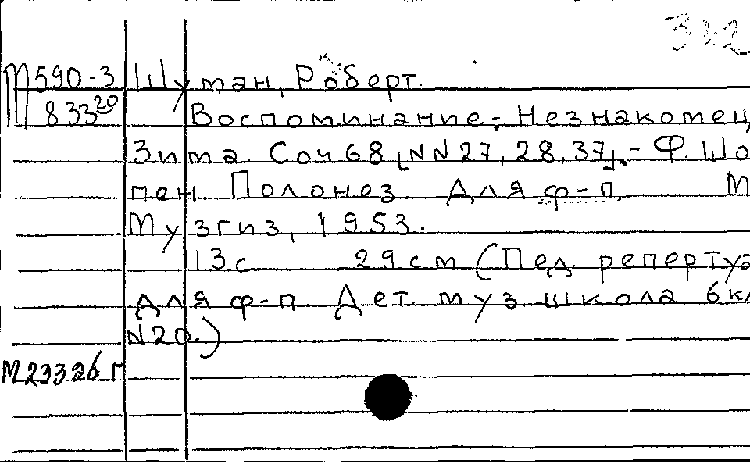 322
М590-3 Шуман, Роберт.
833²⁰ Воспоминание; Незнакомец,
Зима. Соч 68 [NN27, 28, 37]. - Ф. Шо
пен. Полонез. Для ф-п. М
Музгиз, 1953.
13с 29см (Пед. репертуа
для ф-п Дет. муз. школа 6кл
N20.)
М23326г